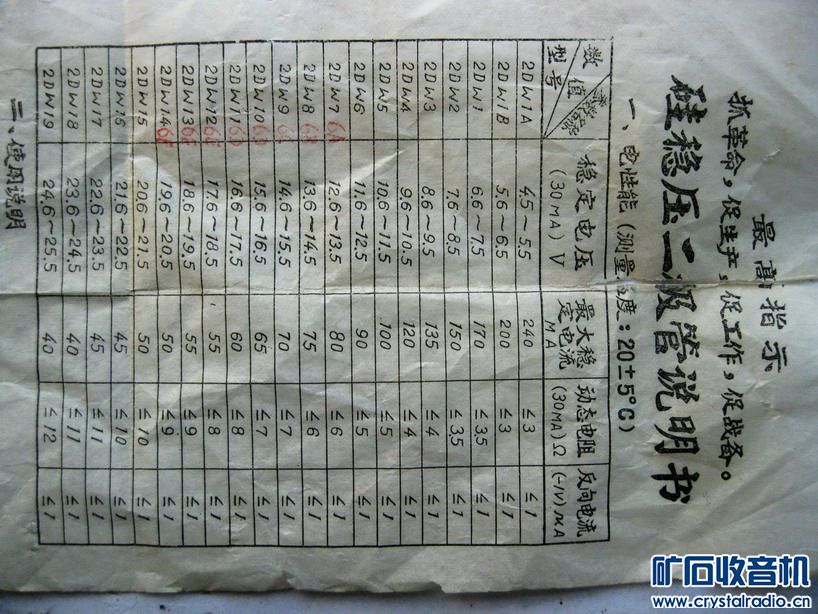 最高指示
抓革命，促生产，促工作，促战备。
硅稳压二极管说明书
一、电性能（测量温度：20±5°C）
数值 型号 稳定电压 (30MA) V 最大稳定电流 MA 动态电阻 (30MA) Ω 反向电流 (-1V) μA
2DW1A 4.5~5.5 240 ≤3 ≤1
2DW1B 5.6~6.5 200 ≤3 ≤1
2DW1 6.6~7.5 170 ≤3.5 ≤1
2DW2 7.6~8.5 150 ≤3.5 ≤1
2DW3 8.6~9.5 135 ≤4 ≤1
2DW4 9.6~10.5 120 ≤4 ≤1
2DW5 10.6~11.5 100 ≤5 ≤1
2DW6 11.6~12.5 90 ≤5 ≤1
2DW7 12.6~13.5 80 ≤6 ≤1
2DW8 13.6~14.5 75 ≤6 ≤1
2DW9 14.6~15.5 70 ≤7 ≤1
2DW10 15.6~16.5 65 ≤7 ≤1
2DW11 16.6~17.5 60 ≤8 ≤1
2DW12 17.6~18.5 55 ≤8 ≤1
2DW13 18.6~19.5 55 ≤9 ≤1
2DW14 19.6~20.5 50 ≤9 ≤1
2DW15 20.6~21.5 50 ≤10 ≤1
2DW16 21.6~22.5 45 ≤10 ≤1
2DW17 22.6~23.5 45 ≤11 ≤1
2DW18 23.6~24.5 40 ≤11 ≤1
2DW19 24.6~25.5 40 ≤12 ≤1
二、使用说明
矿石收音机
www.crystalradio.cn